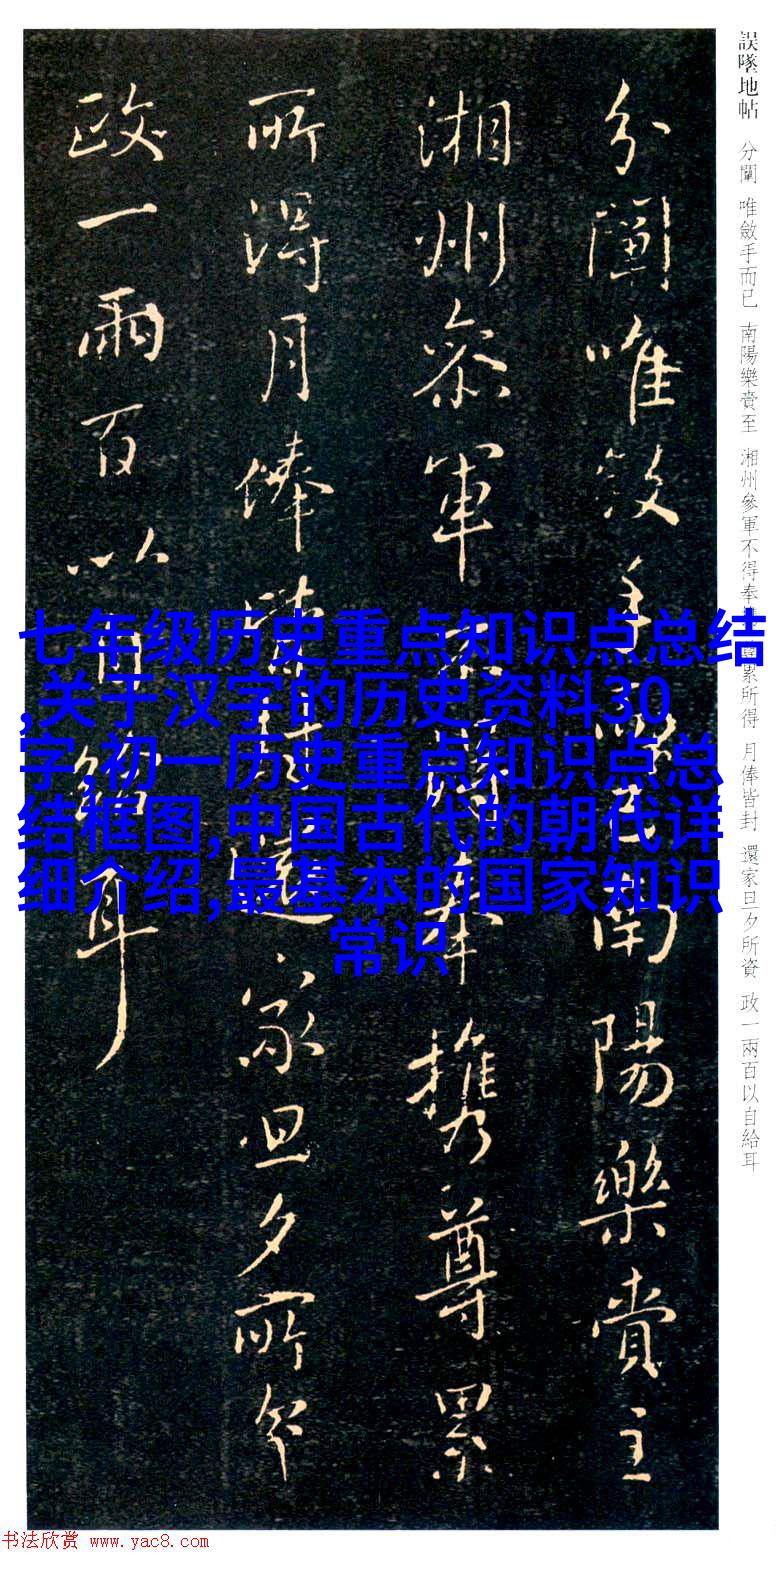 誤墜地帖 分闡 唯斂手而已 南陽樂賫至 湘州參軍不得奉攜尊累所得 月俸皆封 還家旦夕所資 政一兩百以自給耳
分闡唯斂手而已南陽樂賫至
湘州參軍不得奉攜尊累
所得月俸皆封還家旦夕所資
政一兩百以自給耳
七年级历史重点知识点总结
,关于汉字的历史资料30
字,初一历史重点知识点总
结框图,中国古代的朝代详
细介绍,最基本的国家知识
常识
书法欣赏 www.yac8.com